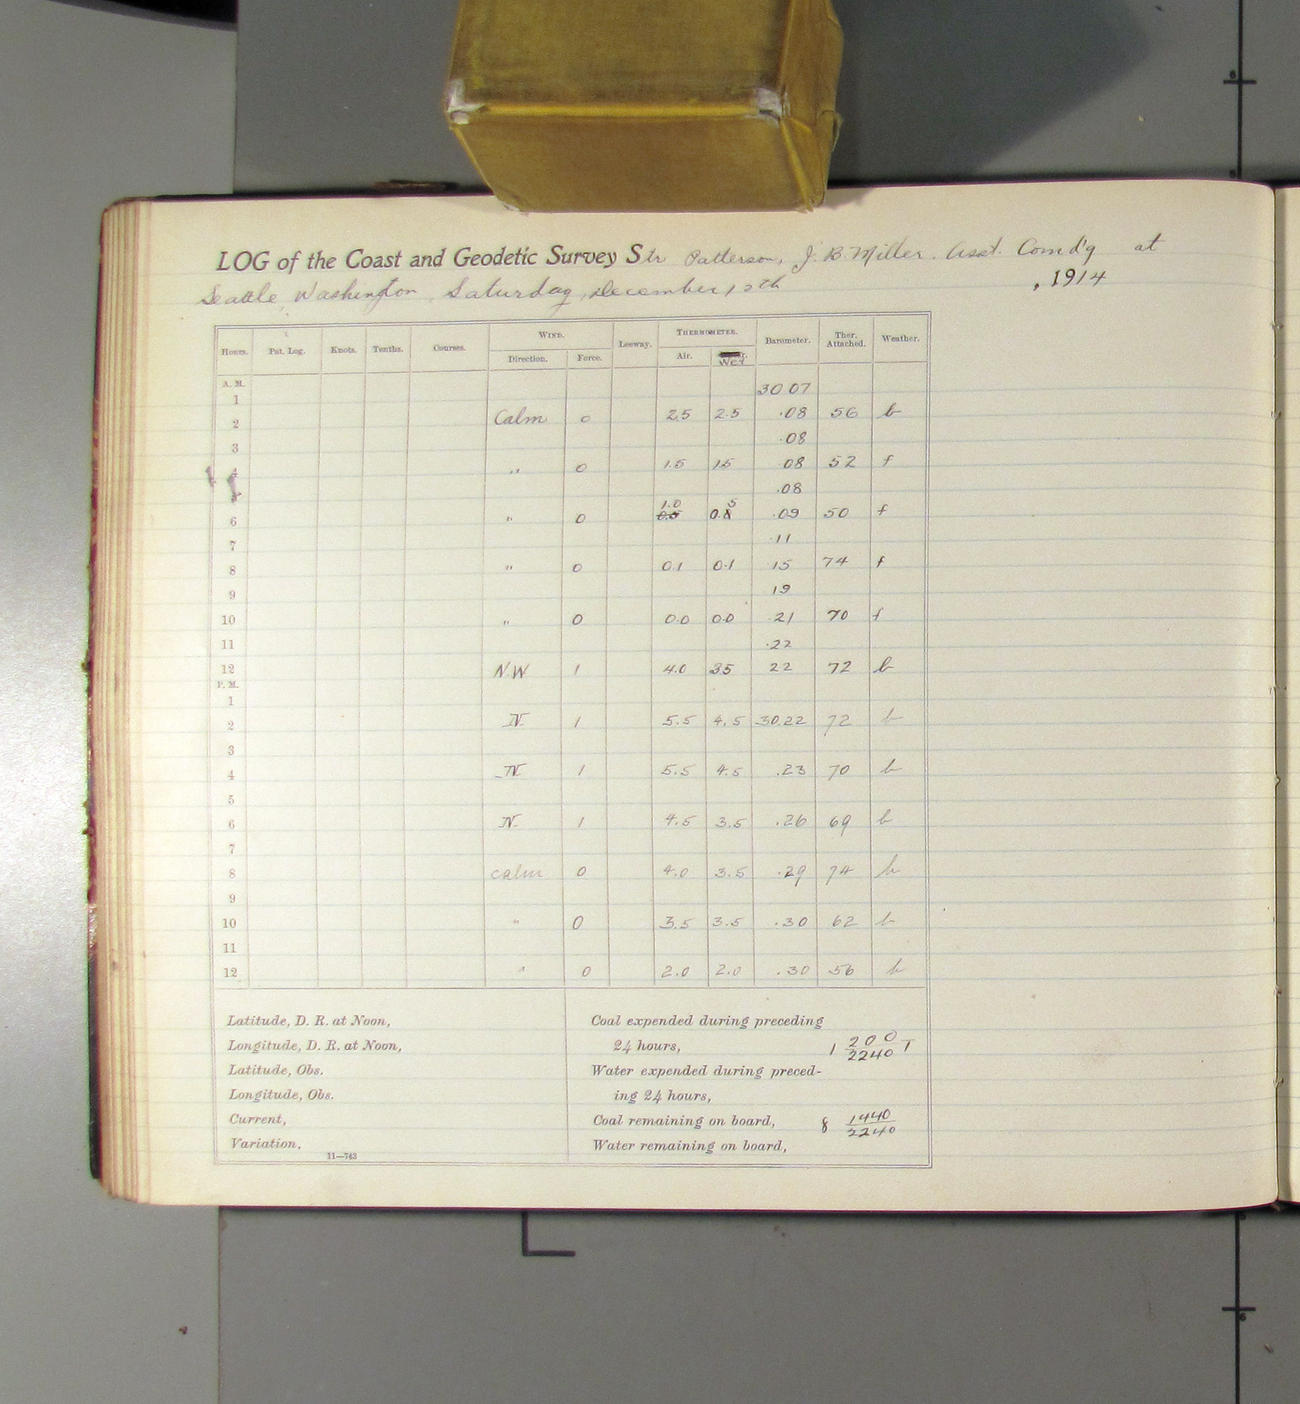 LOG of the Coast and Geodetic Survey Str Patterson, J. B. Miller. Asst. Comd'g at
Seattle, Washington, Saturday, December, 12th , 1914
Hours. Pat. Log. Knots. Tenths. Courses. WIND. Leeway. THERMOMETER. Barometer. Ther. Attached. Weather.
Direction. Force. Air. Wet
A. M.
1 30 07
2 Calm 0 2.5 2.5 .08 56 b
3 .08
4 " 0 1.5 1.5 08 52 f
.08
1.0 5
6 " 0 0.5 0.8 .09 50 f
7 .11
8 " 0 0.1 0.1 15 74 f
9 19
10 " 0 0.0 0.0 21 70 f
11 .22
12 N.W 1 4.0 3.5 22 72 b
P. M.
1
2 N. 1 5.5 4.5 30.22 72 b
3
4 N 1 5.5 4.5 .23 70 b
5
6 N. 1 4.5 3.5 .26 69 b
7
8 calm 0 4.0 3.5 .29 74 b
9
10 " 0 3.5 3.5 .30 62 b
11
12 " 0 2.0 2.0 .30 56 b
Latitude, D. R. at Noon,
Longitude, D. R. at Noon,
Latitude, Obs.
Longitude, Obs.
Current,
Variation,
11—763
Coal expended during preceding
24 hours, 1 200/2240 T
Water expended during preced-
ing 24 hours,
Coal remaining on board, 8 1440/2240
Water remaining on board,